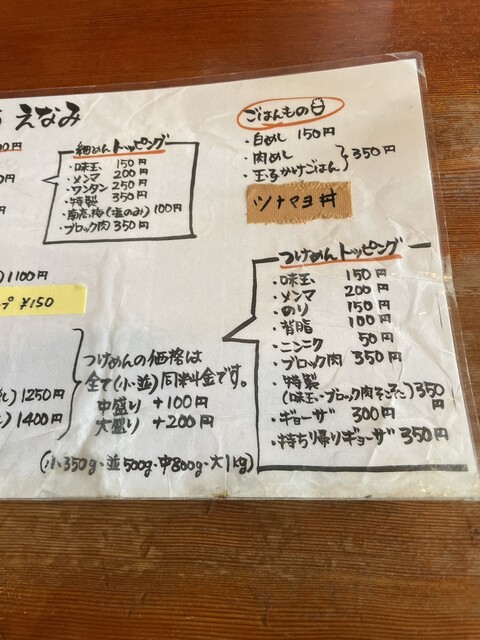 えなみ
00円
0円
円
細めんトッピング
・味玉 150円
・メンマ 200円
・ワンタン 250円
・特製 350円
・南高梅(塩のみ) 100円
・ブロック肉 350円
ごはんもの
・白めし 150円
・肉めし
・玉子かけごはん
350円
ツナマヨ丼
) 1100円
プ ¥150
) 1250円
) 1400円
つけめんの価格は
全て(小・並)同料金です。
中盛り +100円
大盛り +200円
(小350g・並500g・中800g・大1kg)
つけめんトッピング
・味玉 150円
・メンマ 200円
・のり 150円
・背脂 100円
・ニンニク 50円
・ブロック肉 350円
・特製
(味玉・ブロック肉そこそこ) 350円
・ギョーザ 300円
・持ち帰りギョーザ 350円